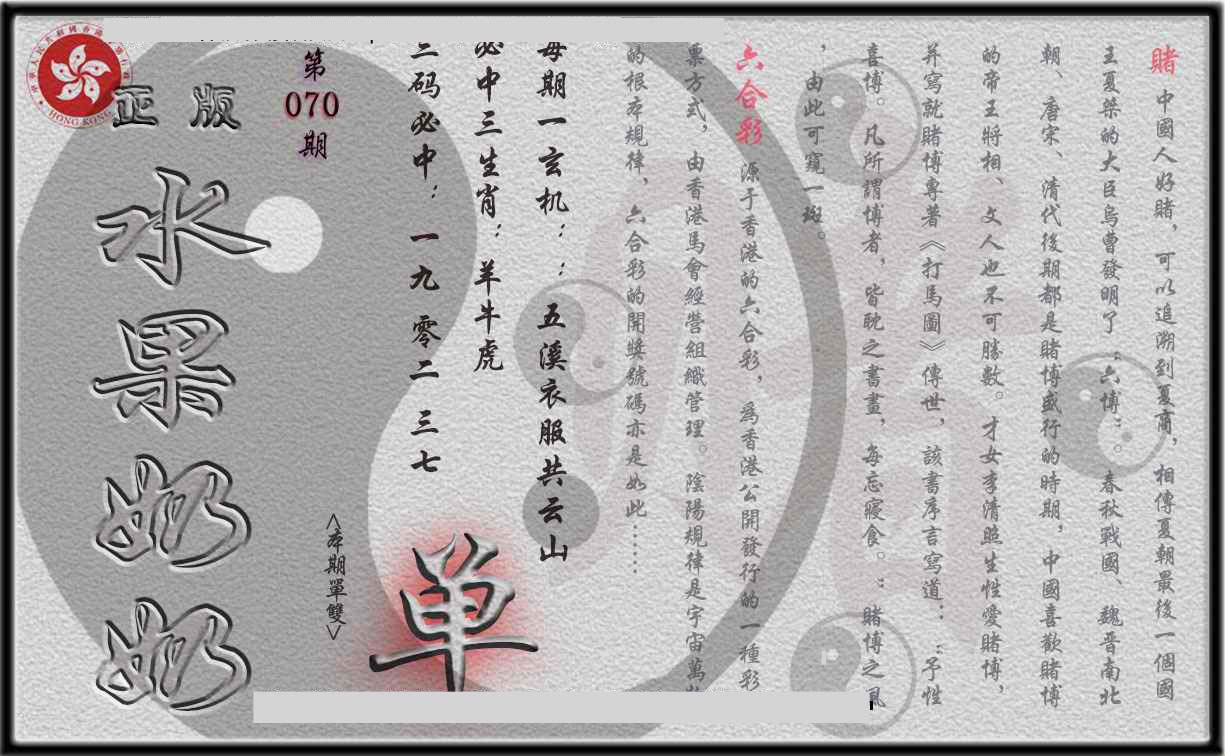 賭 中國人好賭，可以追溯到夏商，相傳夏朝最後一個國
王夏桀的大臣烏曹發明了“六博”。春秋戰國、魏晉南北
朝、唐宋、清代後期都是賭博盛行的時期，中國喜歡賭博
的帝王將相、文人也不可勝數。才女李清照生性愛賭博，
并寫就賭博專著《打馬圖》傳世，該書序言寫道：“予性
喜博。凡所謂博者，皆耽之書畫，每忘寢食。”賭博之風
，由此可窺一斑。
六合彩 源于香港的六合彩，為香港公開發行的一種彩
票方式，由香港馬會經營組織管理。陰陽規律是宇宙萬物
的根本規律，六合彩的開獎號碼亦是如此……
每期一玄机：：五溪衣服共云山
必中三生肖：羊牛虎
三码必中：一九 零二 三七
单
<本期單雙>
第
070
期
正版
水果奶奶
HONG KONG